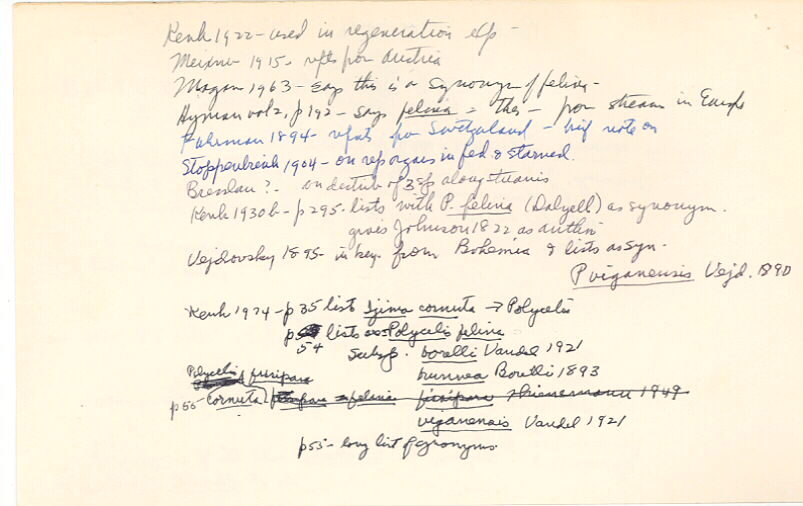 Kenk 1922 - used in regeneration exp -
Meixner 1915 - repts from Austria
Magan 1963 - says this is a synonym of felina -
Hyman vol 2, p 192 - says felina = this - from streams in Europe
Fuhrman 1894 - repts from Switzerland - brief note on
Stoppenbrink 1904 - on rep organs in fed & starved.
Bresslau ? - on distrib of 3 sp along
Kenk 1930b - p 295 - lists with P. felina (Dalyell) as synonym.
gives Johnson 1822 as author
Vejdovsky 1895 - in key - from Bohemia & lists as syn -
P. viganensis Vejd. 1890
Kenk 1974 - p 35 list Ijima cornuta → Polycelis
p 54 lists Polycelis felina
subsp. borelli Vandel 1921
Borelli 1893
Polycelis fissipara
p 55 cornuta fissipara Thienemann 1949
viganensis Vandel 1921
p 55 - long list of synonyms.